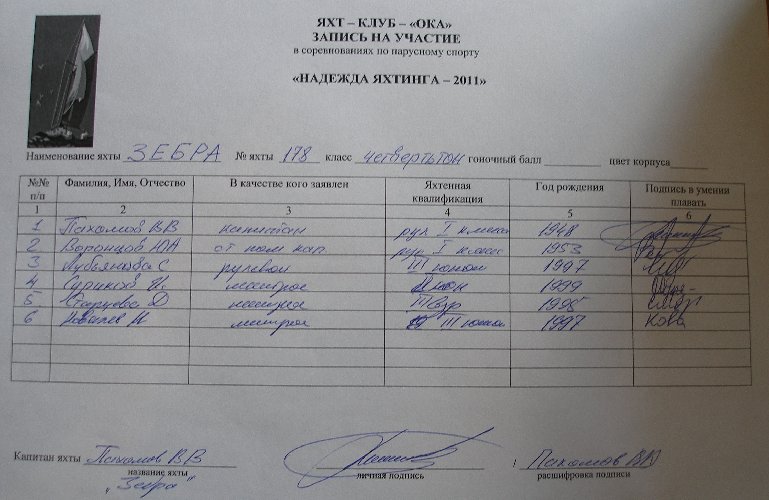 ЯХТ – КЛУБ – «ОКА»
ЗАПИСЬ НА УЧАСТИЕ
в соревнованиях по парусному спорту
«НАДЕЖДА ЯХТИНГА – 2011»
Наименование яхты ЗЕБРА № яхты 178 класс четвертьтон гоночный балл цвет корпуса
№№ п/п Фамилия, Имя, Отчество В качестве кого заявлен Яхтенная квалификация Год рождения Подпись в умении плавать
1 2 3 4 5 6
1 Пахомов В В капитан рул I класса 1948
2 Воронцов ЮА ст пом кап рул I класс 1953
3 С рулевой III юнош 1997
4 матрос юн 1999
5 Д матрос III взр 1995
6 Ковалев матрос III юнош 1997 Кова
Капитан яхты Пахомов В В / Пахомов ВВ
название яхты личная подпись расшифровка подписи
„Зебра"